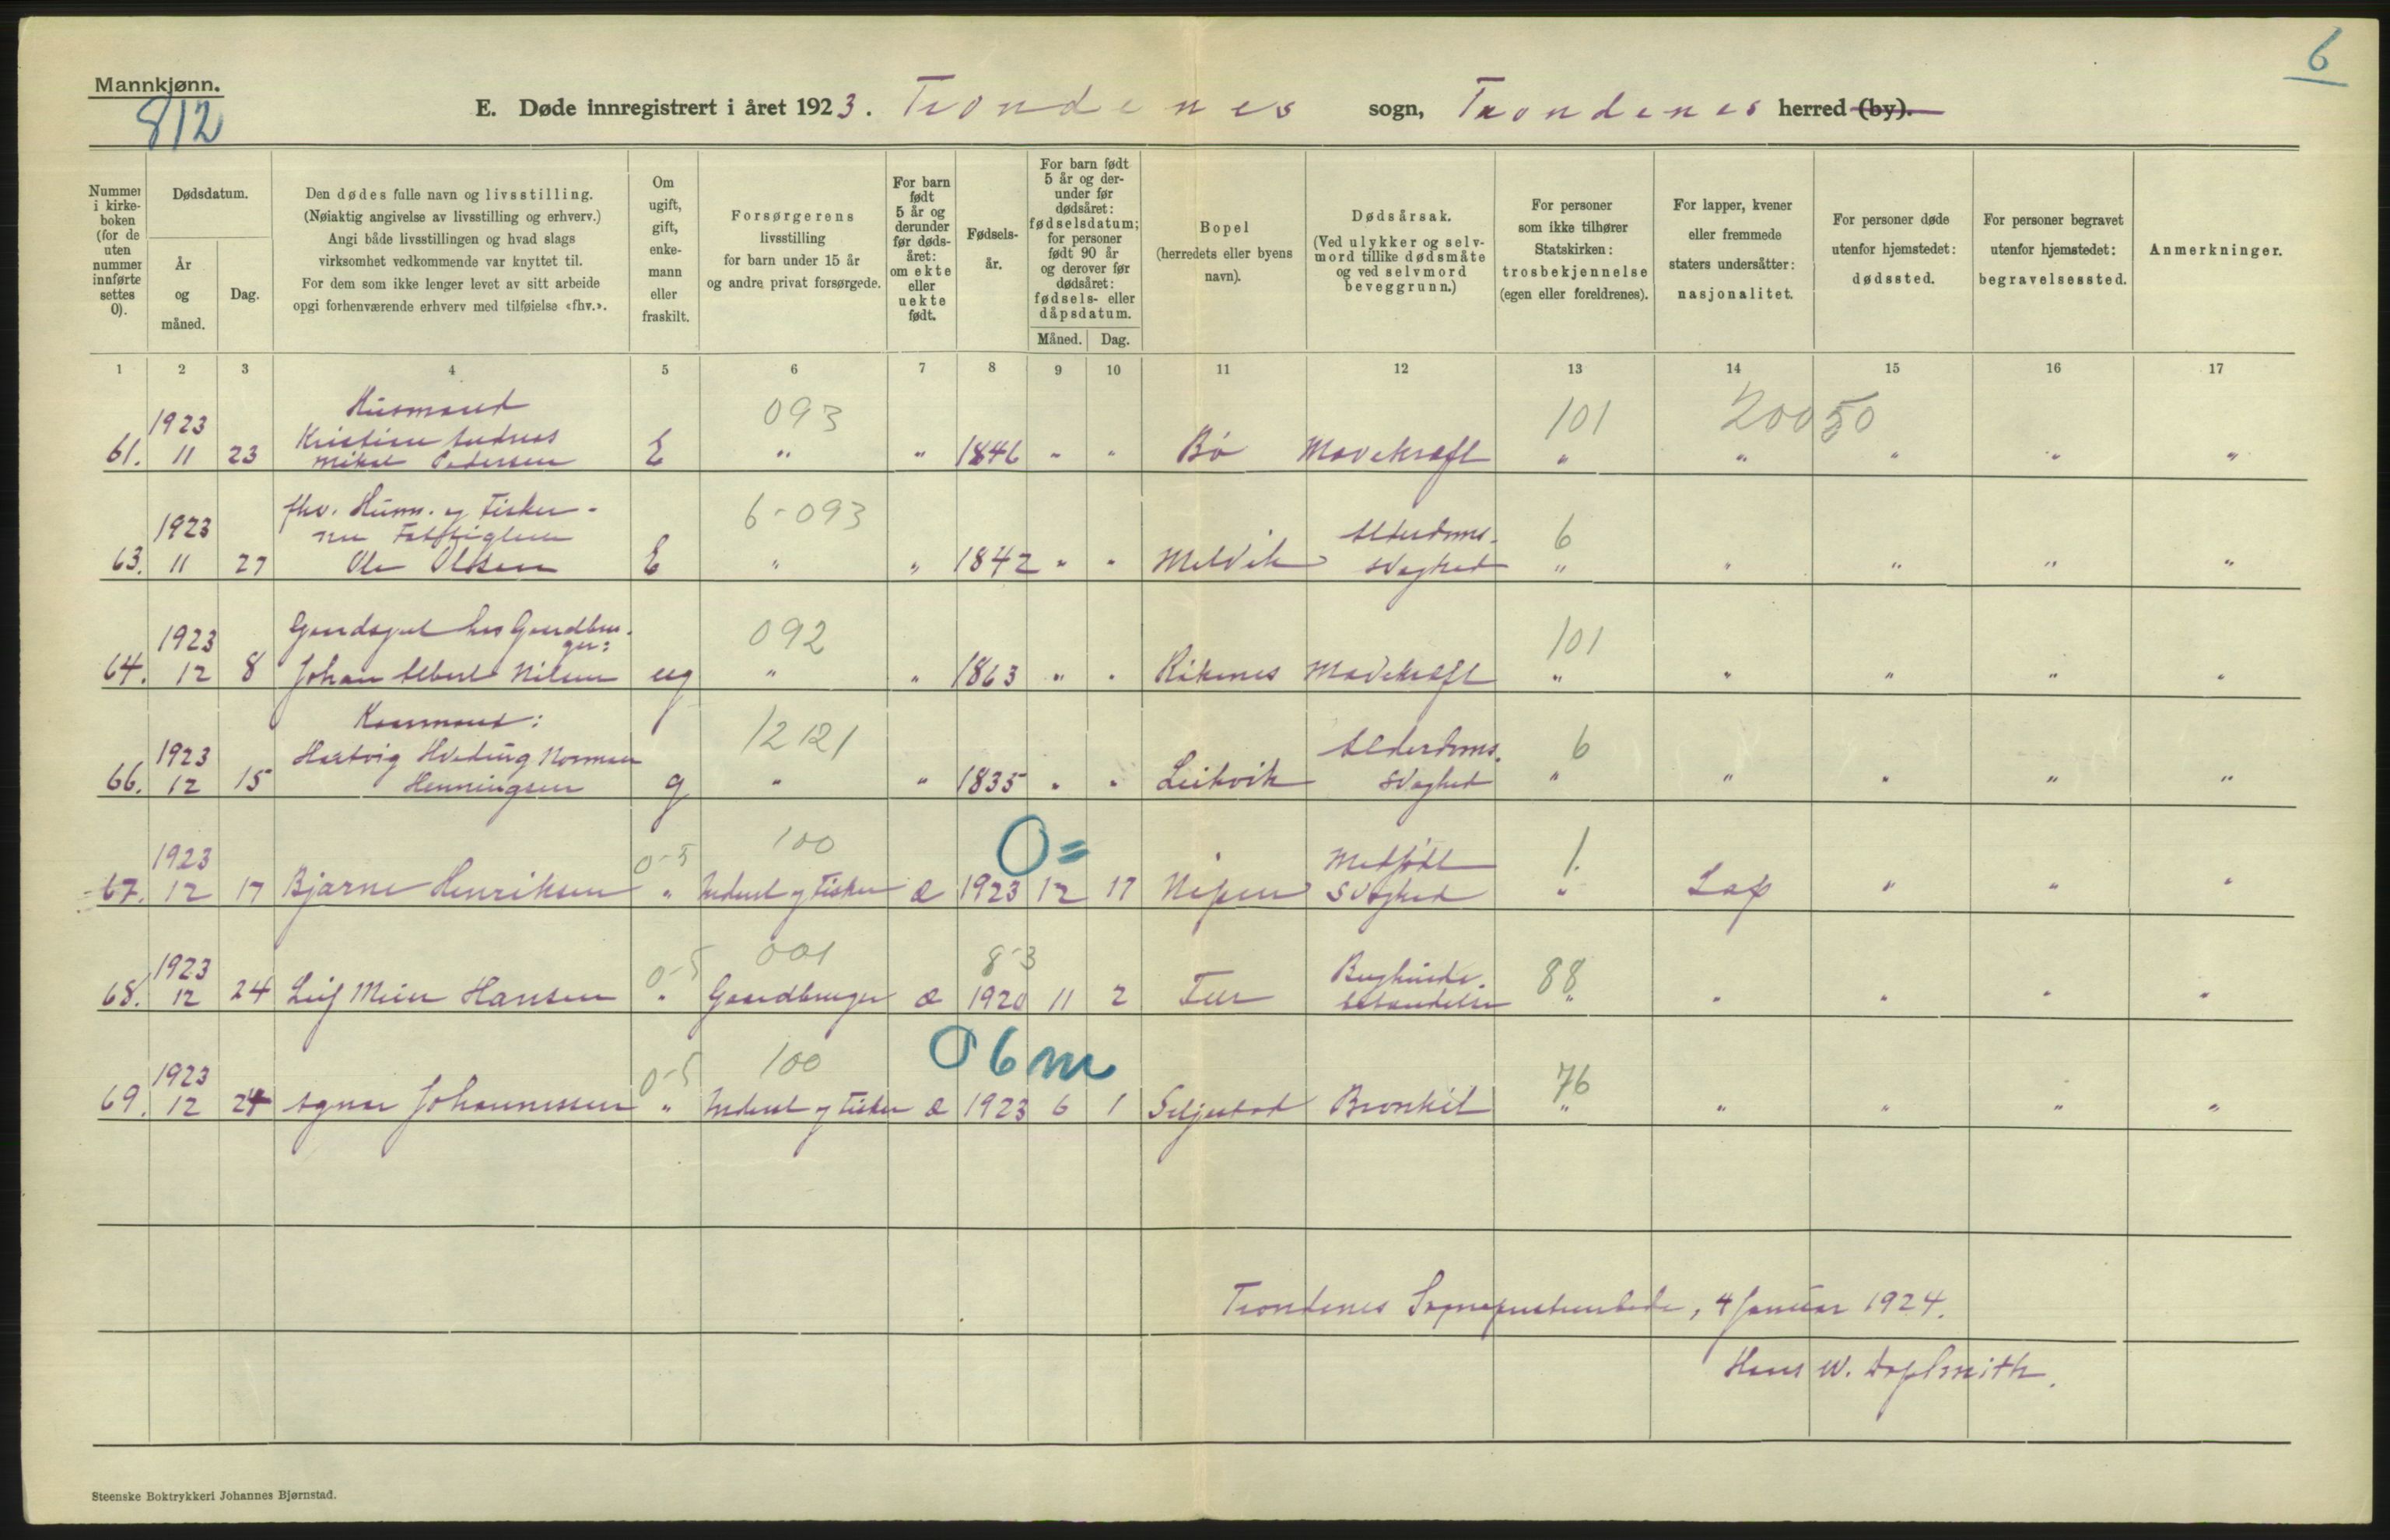 Mannkjønn.
812
6
E. Døde innregistrert i året 1923. Trondenes sogn, Trondenes herred (by).
Nummer i kirkeboken (for de uten nummer innførte settes 0).
Dødsdatum.
År og måned.
Dag.
Den dødes fulle navn og livsstilling.
(Nøiaktig angivelse av livsstilling og erhverv.)
Angi både livsstillingen og hvad slags
virksomhet vedkommende var knyttet til.
For dem som ikke lenger levet av sitt arbeide
opgi forhenværende erhverv med tilføielse «fhv.».
Om ugift, gift, enkemann eller fraskilt.
Forsørgerens
livsstilling
for barn under 15 år
og andre privat forsørgede.
For barn født 5 år og derunder før dødsåret: om ekte eller uekte født.
Fødselsår.
For barn født 5 år og derunder før dødsåret: fødselsdatum; for personer født 90 år og derover før dødsåret: fødsels- eller dåpsdatum.
Måned. Dag.
Bopel
(herredets eller byens
navn).
Dødsårsak.
(Ved ulykker og selvmord tillike dødsmåte og ved selvmord beveggrunn.)
For personer
som ikke tilhører
Statskirken:
trosbekjennelse
(egen eller foreldrenes).
For lapper, kvener
eller fremmede
staters undersåtter:
nasjonalitet.
For personer døde
utenfor hjemstedet:
dødssted.
For personer begravet
utenfor hjemstedet:
begravelsessted.
Anmerkninger.
1 2 3 4 5 6 7 8 9 10 11 12 13 14 15 16 17
Husmand 093 101 200 50
1923 Kristian Andreas
61. 11 23 Mikal Pedersen E " " 1846 " " Bø Mavekræft " " " " "
fhv. Husm. og Fisker - 6-093
1923 nu Fattiglem Alderdoms- 6
63. 11 27 Ole Olsen E " " 1842 " " Melvik svaghed " " " " "
Gaardsgut hos Gaardbru- 092 101
1923 ger:
64. 12 8 Johan Albert Nilsen ug " " 1863 " " Rikenes Mavekræft " " " " "
Kaarmand: 12 121
1923 Hartvig Hveding Norman Alderdoms- 6
66. 12 15 Henningsen g " " 1835 " " Leikvik svaghed " " " " "
1923 0-5 100 0= Medfødt 1.
67. 12 17 Bjarne Henriksen " Inderst og Fisker æ 1923 12 17 Nipen svaghed " Lap " " "
1923 0-5 001 8-3 Bughinde- 88
68. 12 24 Leif Meier Hansen " Gaardbruger æ 1920 11 2 " " " " "
1923 0-5 100 0 6 m 76
69. 12 24 Agnar Johannessen " Inderst og Fisker æ 1923 6 1 Seljestad Bronkit " " " " "
Trondenes Sogneprestembede, 4 Januar 1924.
Hans W.
Steenske Boktrykkeri Johannes Bjørnstad.